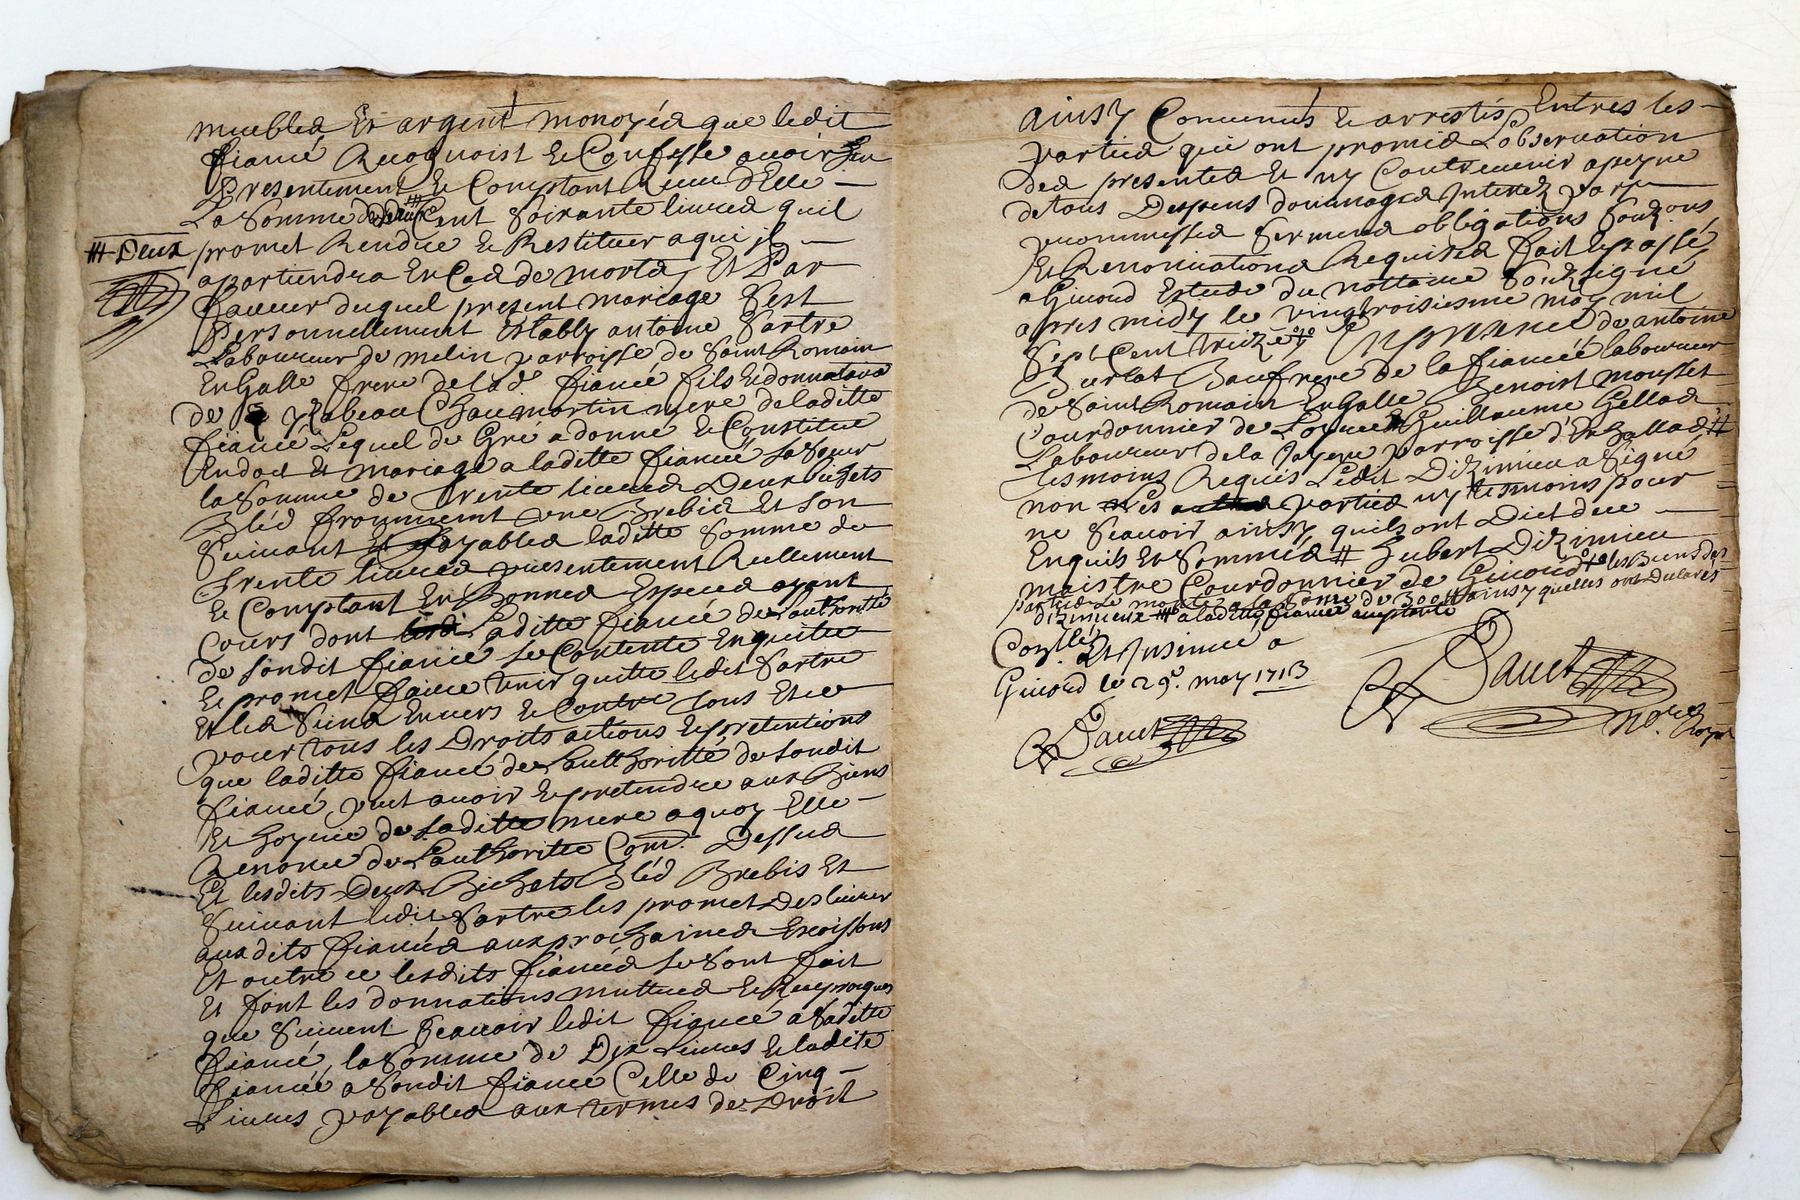 meubles Et argent monoyés que ledit
fiancé Recognoist Et Confesse avoir Eu
Presentement Et Comptant Receu d'Elle
La Somme de Cent Soixante livres quil
# Deux
promet Rendre Et Restituer a qui il
apartiendra En Cas de morts, Et Par
faveur duquel present mariage Sest
Personnellement Estably antoine Sartre
Laboureur de melin parroisse de Saint Romain
En Galle frere de lad.e fiancée fils Et donnataire
de Yzabeau Chaumartin mere de laditte
fiancée Lequel de Gré a donné Et Constitué
En dot Et mariage a laditte fiancée Sa Soeur
la Somme de Trente livres Deux bichets
Bled froument une Brebis Et Son
Suivant payables laditte Somme de
trente livres presentement Reellement
Et Comptant En Bonnes Especes ayant
Cours dont Laditte fiancée de Lauthoritté
de Sondit fiancé Se Contente En quitte
Et promet faire tenir quitte ledit Sartre
Et les Siens Envers Et Contre tous Et ce
pour tous les Droits actions Et pretentions
que laditte fiancée de Lauthoritté de Sondit
fiancé peut avoir Et pretendre aux Biens
Et hoyrie de Saditte mere a quoy Elle
Renonce de Lauthoritté Com. Dessus
Et lesdits Deux Bichets Bled Brebis Et
Suivant ledit Sartre les promet Deslivrer
ausdits fiancés aux prochaines
Et outre ce lesdits fiancés Se Sont fait
Et font les donnations mutuees Et Reciproques
que Suivent Scavoir ledit fiancé a Saditte
fiancée, la Somme de Dix Livres Et ladite
fiancée a Sondit fiancé Celle de Cinq
Livres payables aux termes de Droit
ainsy Convenus Et arrestés Entres les
parties qui ont promis Lobservation
des presentes Et ny Contrevenir a peyne
de tous Despens dommages Interez par
promesses Serment obligations
Et Renonciations Requises fait Et passé
a Givord Estude du nottaire Soubsigné
apres midy le vingtroisiesme may mil
Sept Cent treize En presence de antoine
Burlat Baufrere de la fiancée laboureur
de Saint Romain En Galle Benoist mousset
Courdonnier de Guillaume Gellas
Laboureur de la parroisse d'Eschallas #
tesmoins Requis Ledit Dizimieu a Signé
non les parties ny tesmoins pour
ne Scavoir ainsy quils ont Dict de ce
Enquis Et Sommés # hubert Dizimieu
maistre Courdonnier de Givord les Biens des
parties Se monte a la Some de 300 # ainsy quelles ont declarés
dizimieux a laditte fiancée
Conllé
Et Insinué a
Givord le 29.e may 1713
Dauet
Dauet
no.re Royal